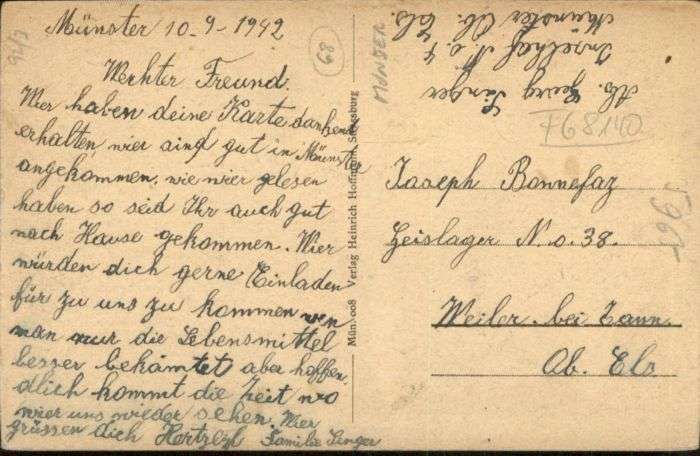 Münster 10-9-1942
Werhter Freund.
Wier haben deine Karte dankend
erhalten, wier sind gut in Münster
angekommen. wie wier gelesen
haben so seid Ihr auch gut
nach Hause gekommen. Wier
würden dich gerne Einladen
für zu uns zu kommen wen
man nur die Lebensmittel
besser bekämtet aber hoffen.
dlich kommt die Zeit wo
wier uns wieder sehen. Wier
grüssen dich Hertzlzl Familie Singer
89
MUNSTER
Münster Ob. Els.
Inselhof N. o 4
Ab. Georg Singer
F68140
Mün. 008 Verlag Heinrich Hoffmann, Strassburg
Joseph Bonnefaz
Zeislager N.o. 38.
Weiler. bei Tann.
Ob. Els